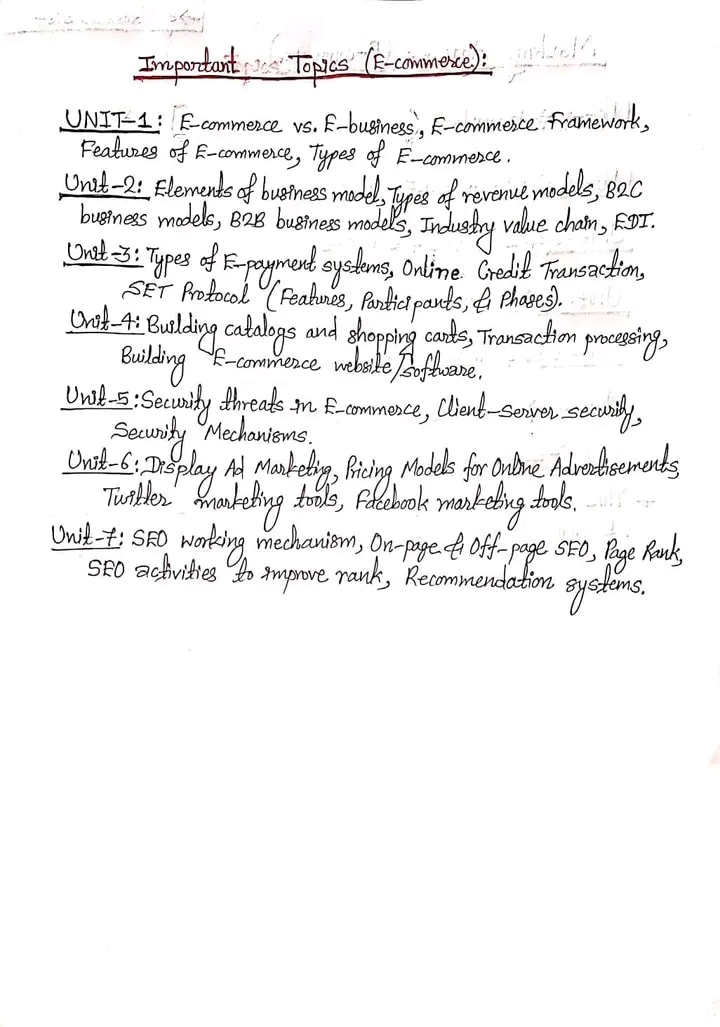 Important Topics (E-commerce):
UNIT-1: E-commerce vs. E-business, E-commerce framework,
Features of E-commerce, Types of E-commerce.
Unit-2: Elements of business model, Types of revenue models, B2C
business models, B2B business models, Industry value chain, EDI.
Unit-3: Types of E-payment systems, Online Credit Transaction,
SET Protocol (Features, Participants, & Phases).
Unit-4: Building catalogs and shopping carts, Transaction processing,
Building E-commerce website/software.
Unit-5: Security threats in E-commerce, Client-Server security,
Security Mechanisms.
Unit-6: Display Ad Marketing, Pricing Models for Online Advertisements,
Twitter marketing tools, Facebook marketing tools.
Unit-7: SEO working mechanism, On-page & Off-page SEO, Page Rank,
SEO activities to improve rank, Recommendation systems.